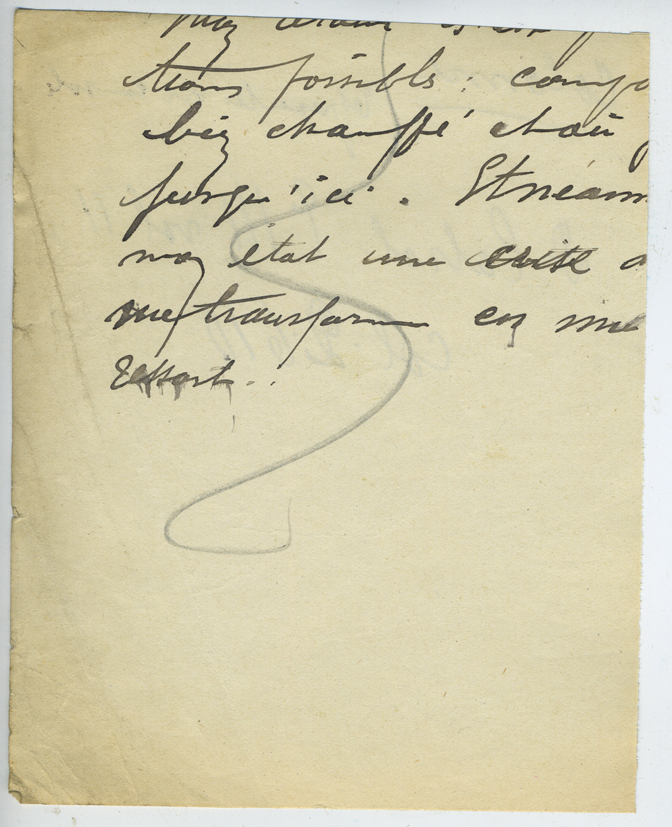 tions possibles : comp
bien chauffé et où
jusqu'ici . Et néanm
mon état une crise
me transforme en